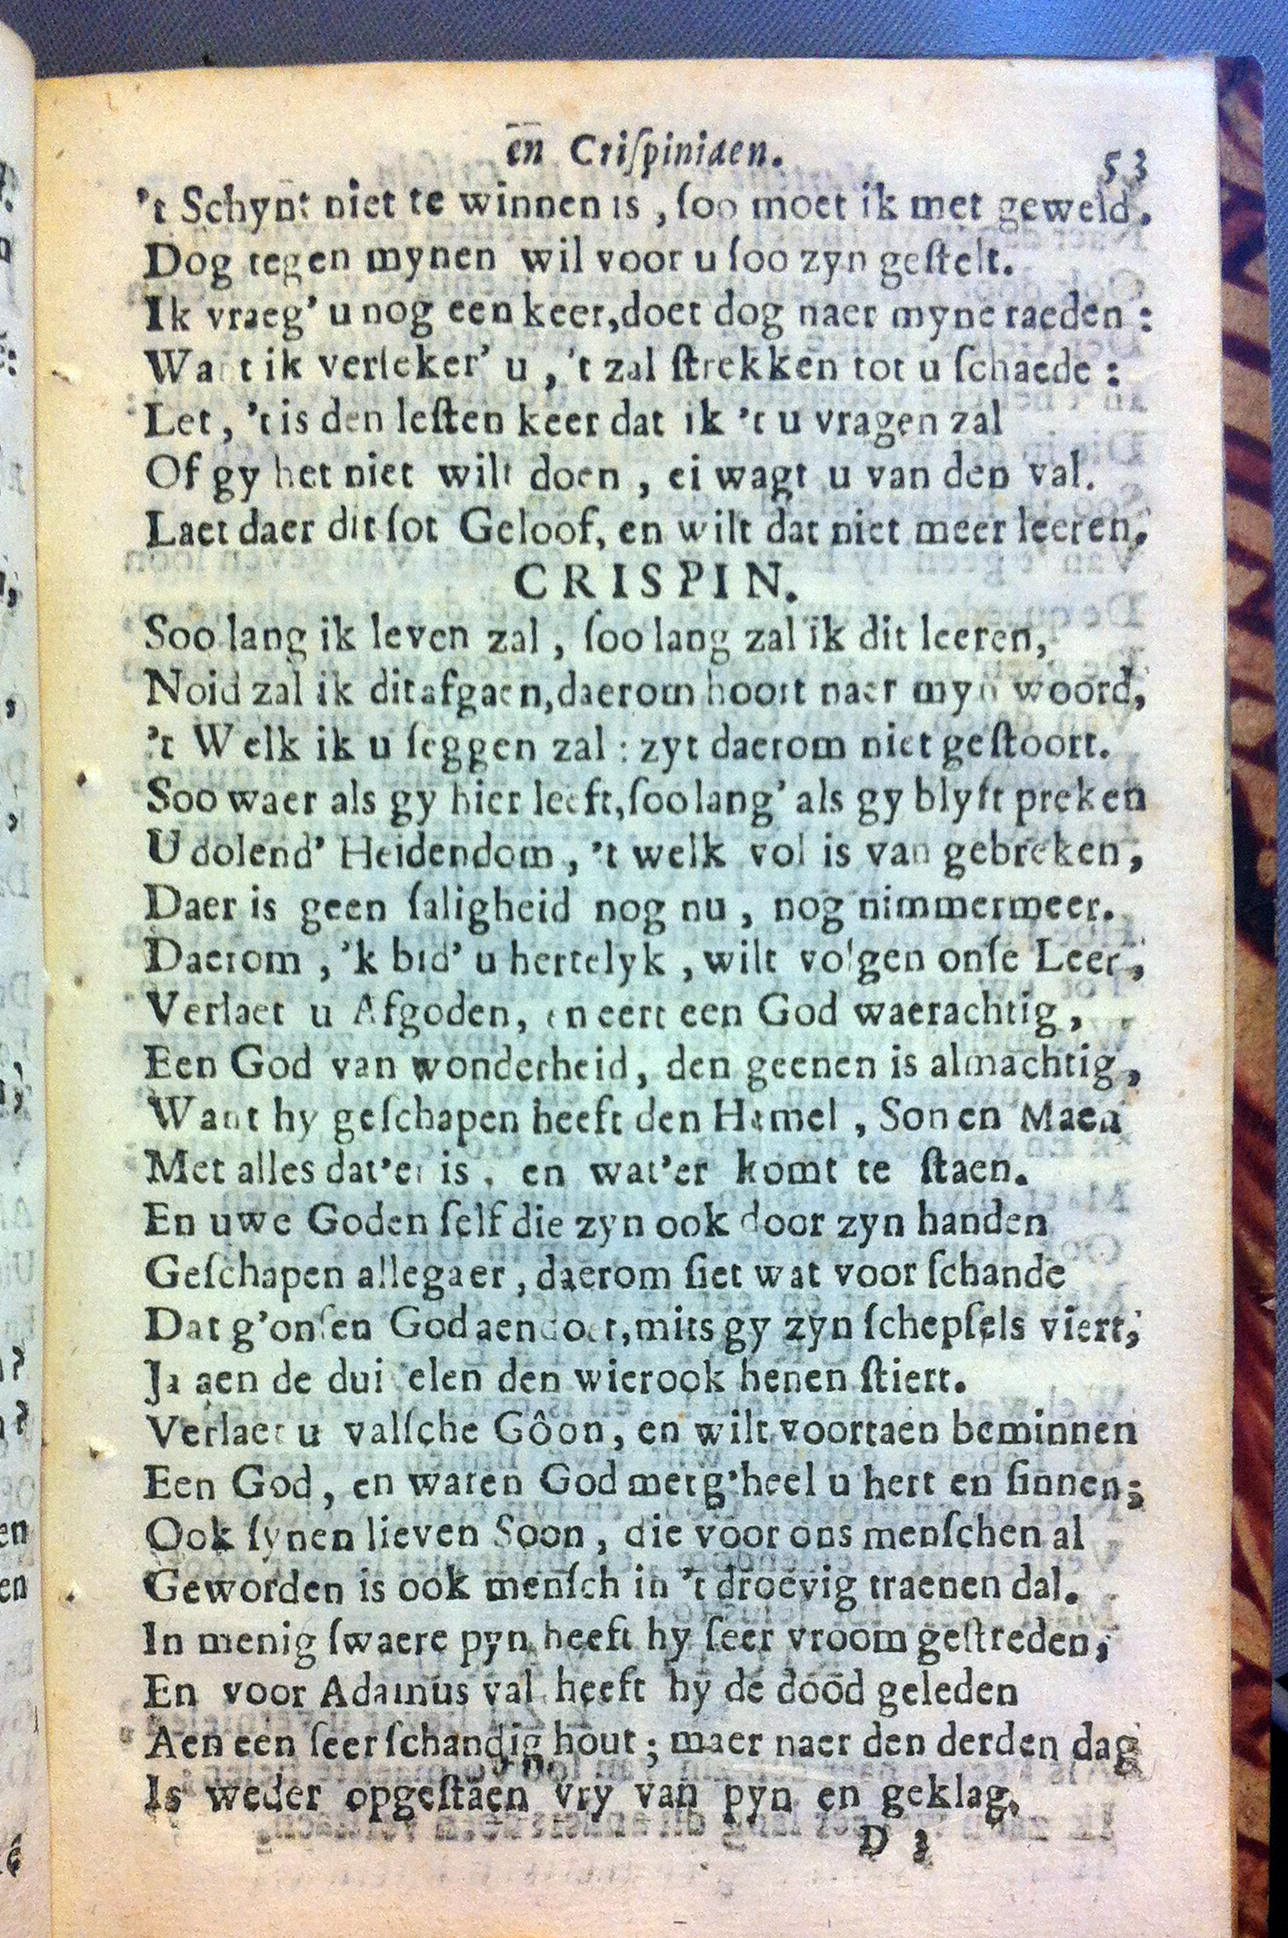 en Criſpiniaen. 53
't Schynt niet te winnen is, ſoo moet ik met geweld.
Dog tegen mynen wil voor u ſoo zyn geſtelt.
Ik vraeg' u nog een keer, doet dog naer myne raeden:
Want ik verſeker' u, 't zal ſtrekken tot u ſchaede:
Let, 't is den leſten keer dat ik 't u vragen zal
Of gy het niet wilt doen, ei wagt u van den val.
Laet daer dit ſot Geloof, en wilt dat niet meer leeren.
CRISPIN.
Soo lang ik leven zal, ſoo lang zal ik dit leeren,
Noid zal ik dit afgaen, daerom hoort naer myn woord,
't Welk ik u ſeggen zal: zyt daerom niet geſtoort.
Soo waer als gy hier leeft, ſoo lang' als gy blyft preken
U dolend' Heidendom, 't welk vol is van gebreken,
Daer is geen ſaligheid nog nu, nog nimmermeer.
Daerom, 'k bid' u hertelyk, wilt volgen onſe Leer,
Verlaet u Afgoden, en eert een God waerachtig,
Een God van wonderheid, den geenen is almachtig,
Want hy geſchapen heeft den Hemel, Son en Maen
Met alles dat'er is, en wat'er komt te ſtaen.
En uwe Goden ſelf die zyn ook door zyn handen
Geſchapen allegaer, daerom ſiet wat voor ſchande
Dat g'onſen God aendoet, mits gy zyn ſchepſels viert,
Ja aen de duivelen den wierook henen ſtiert.
Verlaet u valſche Gôon, en wilt voortaen beminnen
Een God, en waren God met g'heel u hert en ſinnen;
Ook ſynen lieven Soon, die voor ons menſchen al
Geworden is ook menſch in 't droevig traenen dal.
In menig ſwaere pyn heeft hy ſeer vroom geſtreden,
En voor Adamus val heeft hy de dood geleden
Aen een ſeer ſchandig hout; maer naer den derden dag
Is weder opgeſtaen vry van pyn en geklag.
D 3